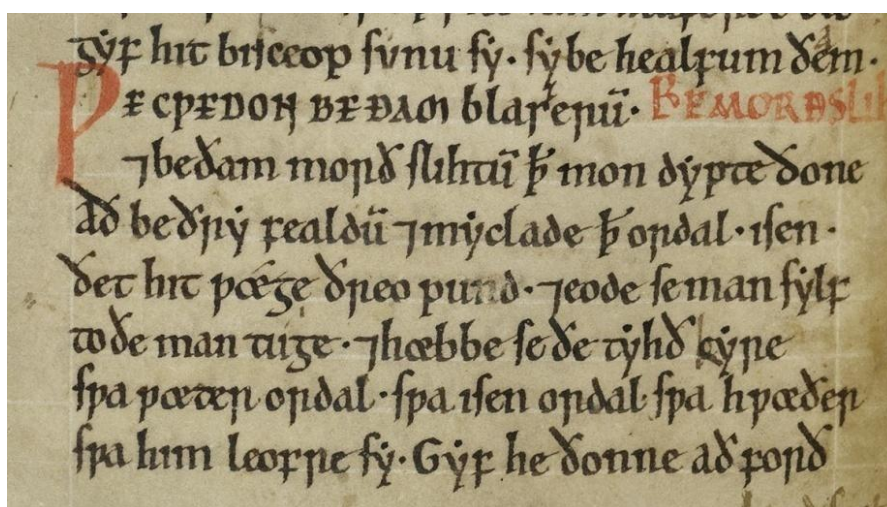 gyf hit bisceop sunu sy · sy be healfum ðem ·
ǷE CǷEDON BE ÐAM blaserū · BE MORÐSLIH
⁊ be ðam morð slihtū ꝥ mon dypte ðone
að be ðry fealdū ⁊ myclade ꝥ ordal · isen ·
ðet hit ƿæge ðreo pund · ⁊ eode se man sylf
to ðe man tuge · ⁊ hæbbe se ðe tyhð cyre
sƿa ƿæter ordal · sƿa isen ordal sƿa hƿæðer
sƿa him leofre sy · Gyf he ðonne að forð